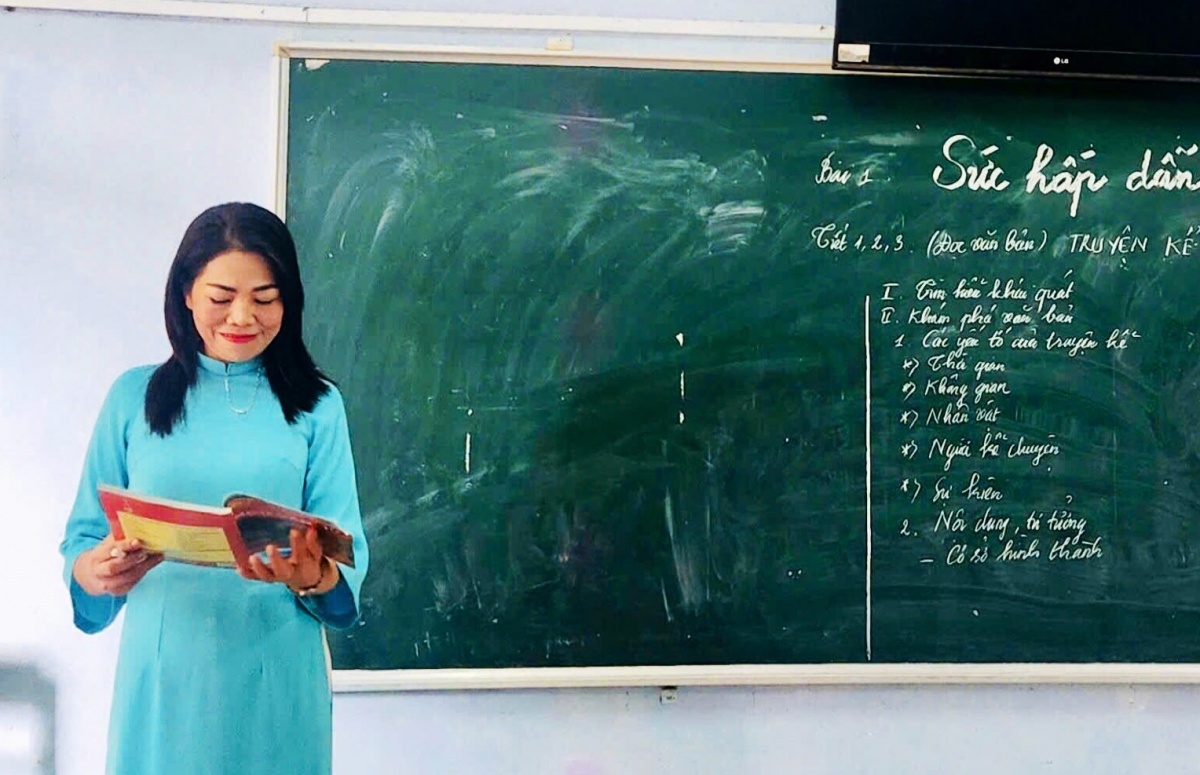 LG
Bài 1 Sức hấp dẫn
Tiết 1, 2, 3. (Đọc văn bản) TRUYỆN KỂ
I. Tìm hiểu khái quát
II. Khám phá văn bản
1. Các yếu tố của truyện kể
*) Thời gian
*) Không gian
*) Nhân vật
*) Người kể chuyện
*) Sự kiện
2. Nội dung, tư tưởng
- Cơ sở hình thành